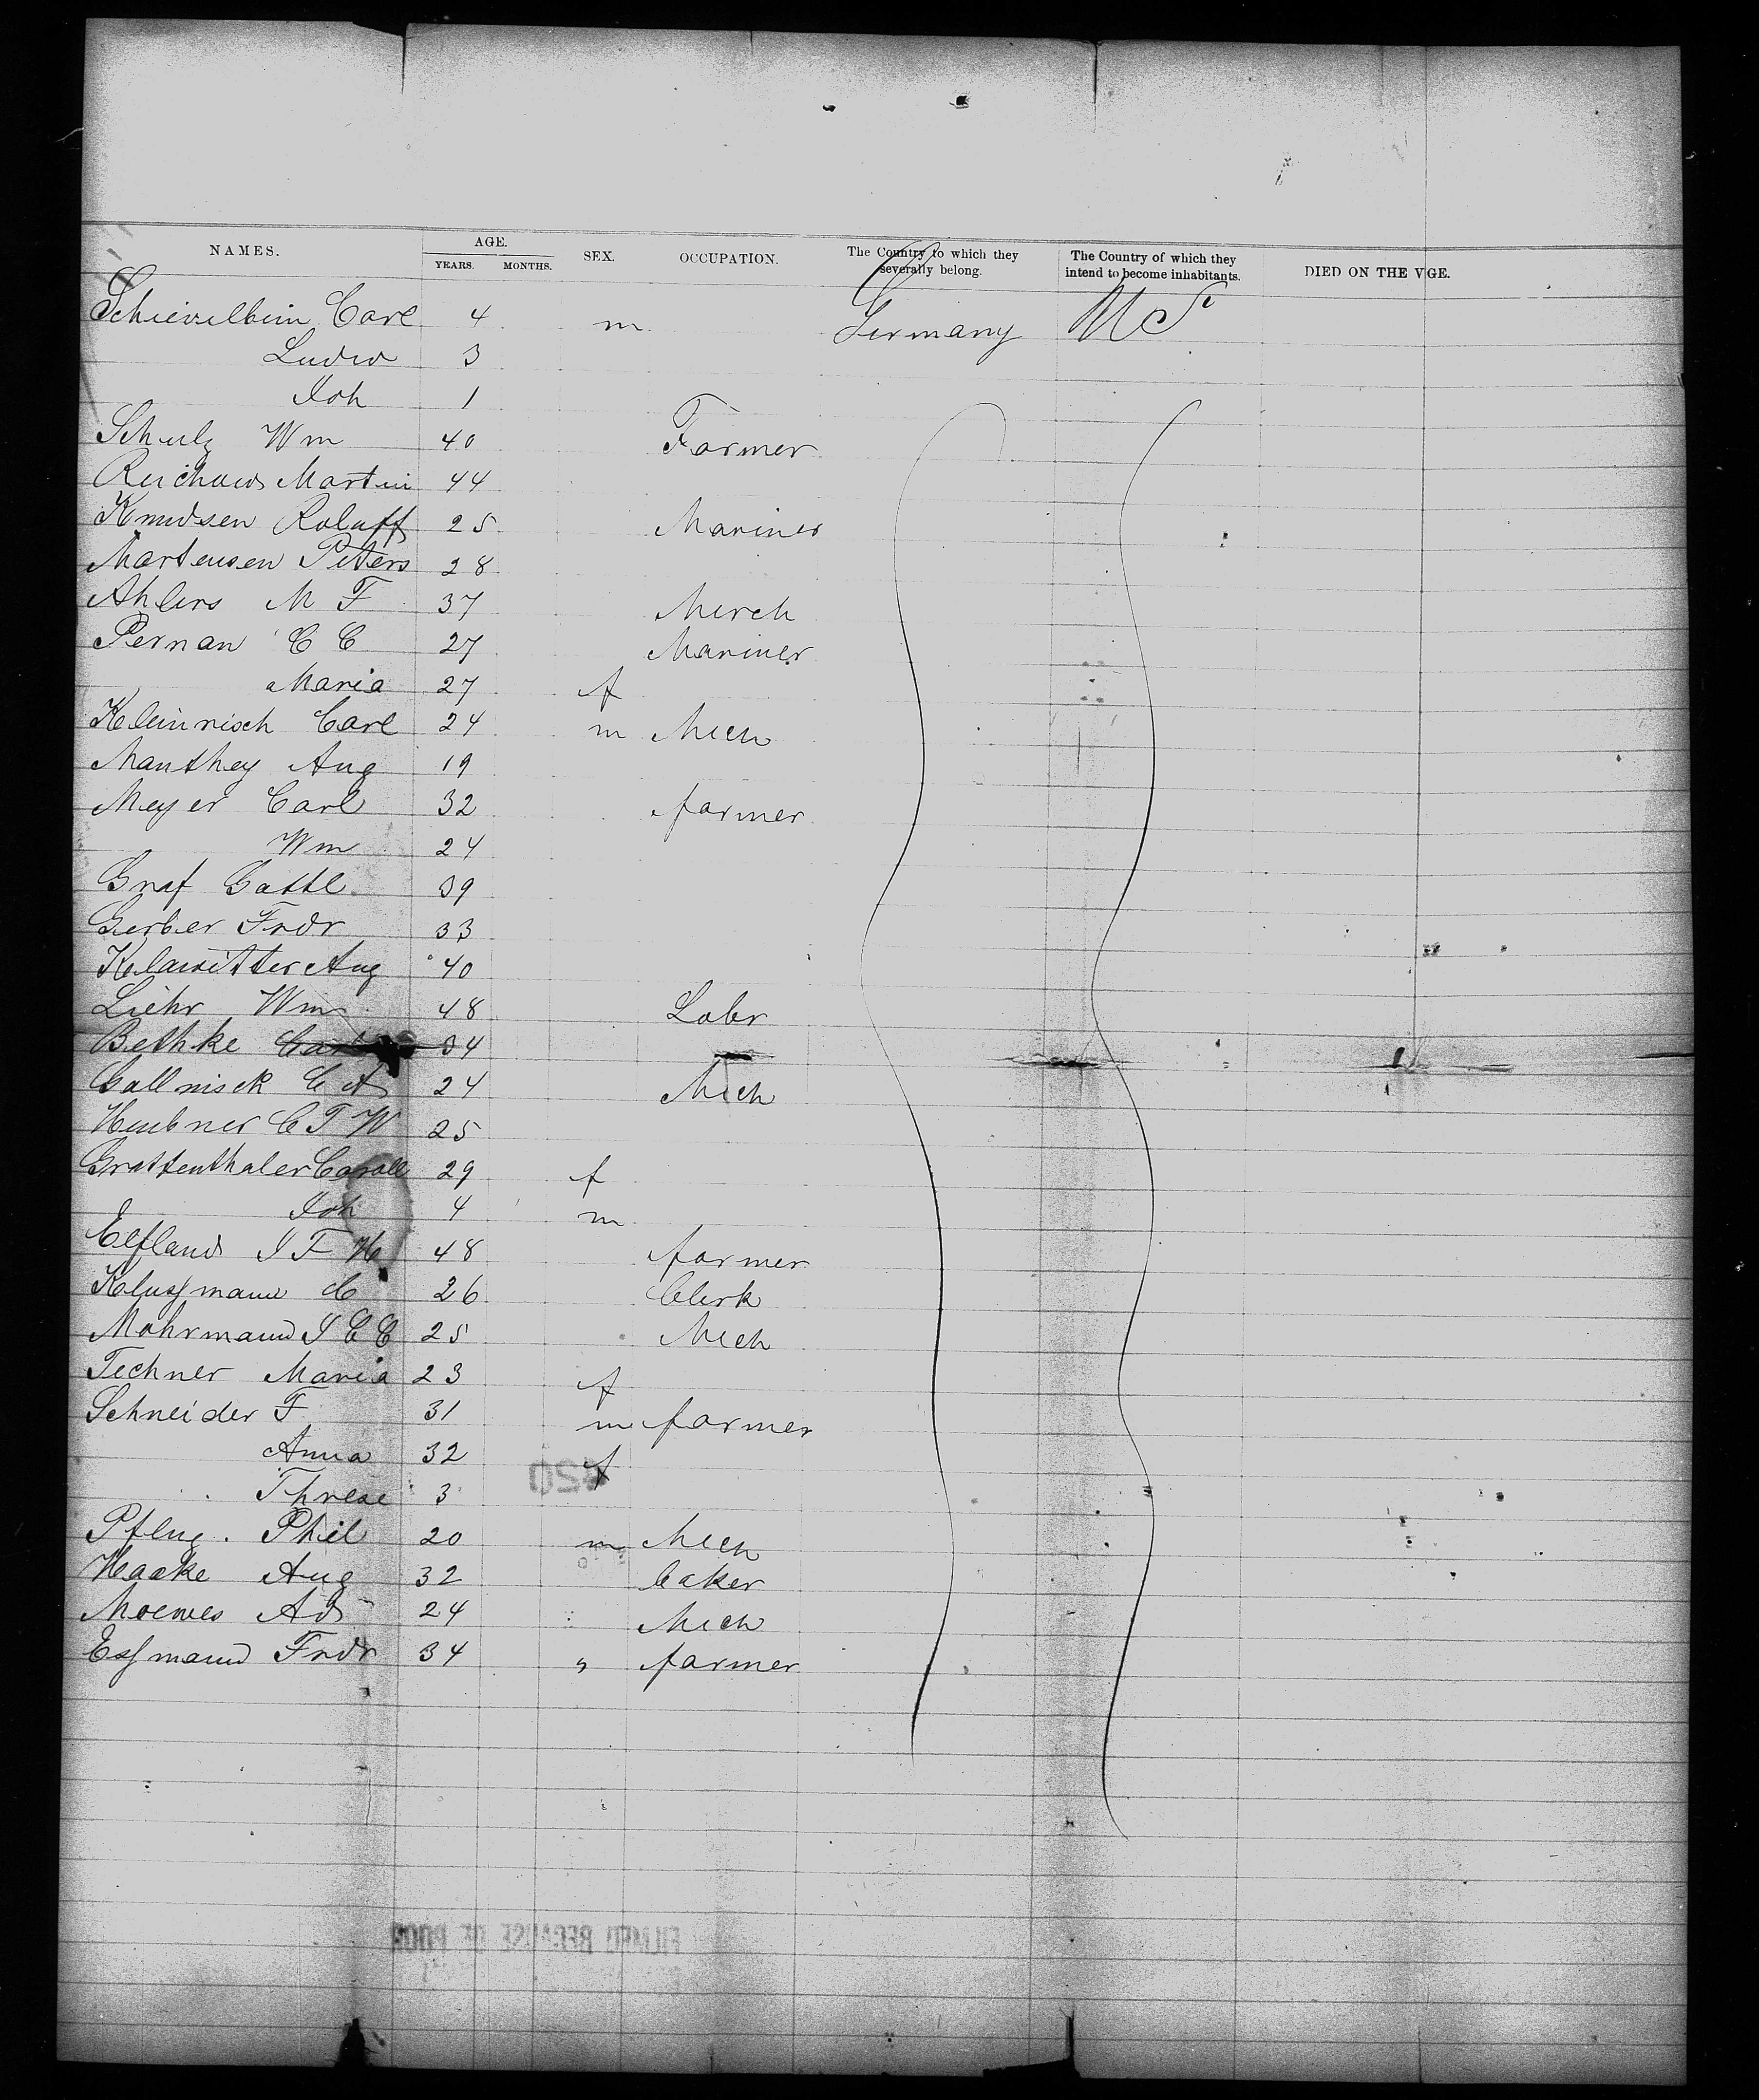 NAMES. AGE. YEARS. MONTHS. SEX. OCCUPATION. The Country to which they severally belong. The Country of which they intend to become inhabitants. DIED ON THE V GE.
Schievelbein Carl 4 m Germany U S
Ludw 3
Joh 1
Schulz Wm 40 Farmer
Reichow Martin 44
Knudsen Roluff 25 Mariner
Martensen Peters 28
Ahlers M F 37 Merch
Pernan C C 27 Mariner
Maria 27 f
Kleinnisch Carl 24 m Mech
Manthey Aug 19
Meyer Carl 32 farmer
Wm 24
Graf Gottl 39
Gerber Fredr 33
Klawitter Aug 40
Liehr Wm 48 Labr
Bethke 34
Gallnisck C A 24 Mech
Huebner C F W 25
Grattenthaler 29 f
Joh 4 m
Elfland J F H 48 farmer
Klussmann C 26 Clerk
Mohrmann J C C 25 Mech
Techner Maria 23 f
Schneider F 31 m farmer
Anna 32 f
Threse 3
Pflug. Phil 20 m Mech
Haake Aug 32 baker
Moewes Ad 24 Mech
Essmann Fredr 34 " farmer
FILMED BECAUSE OF POOR